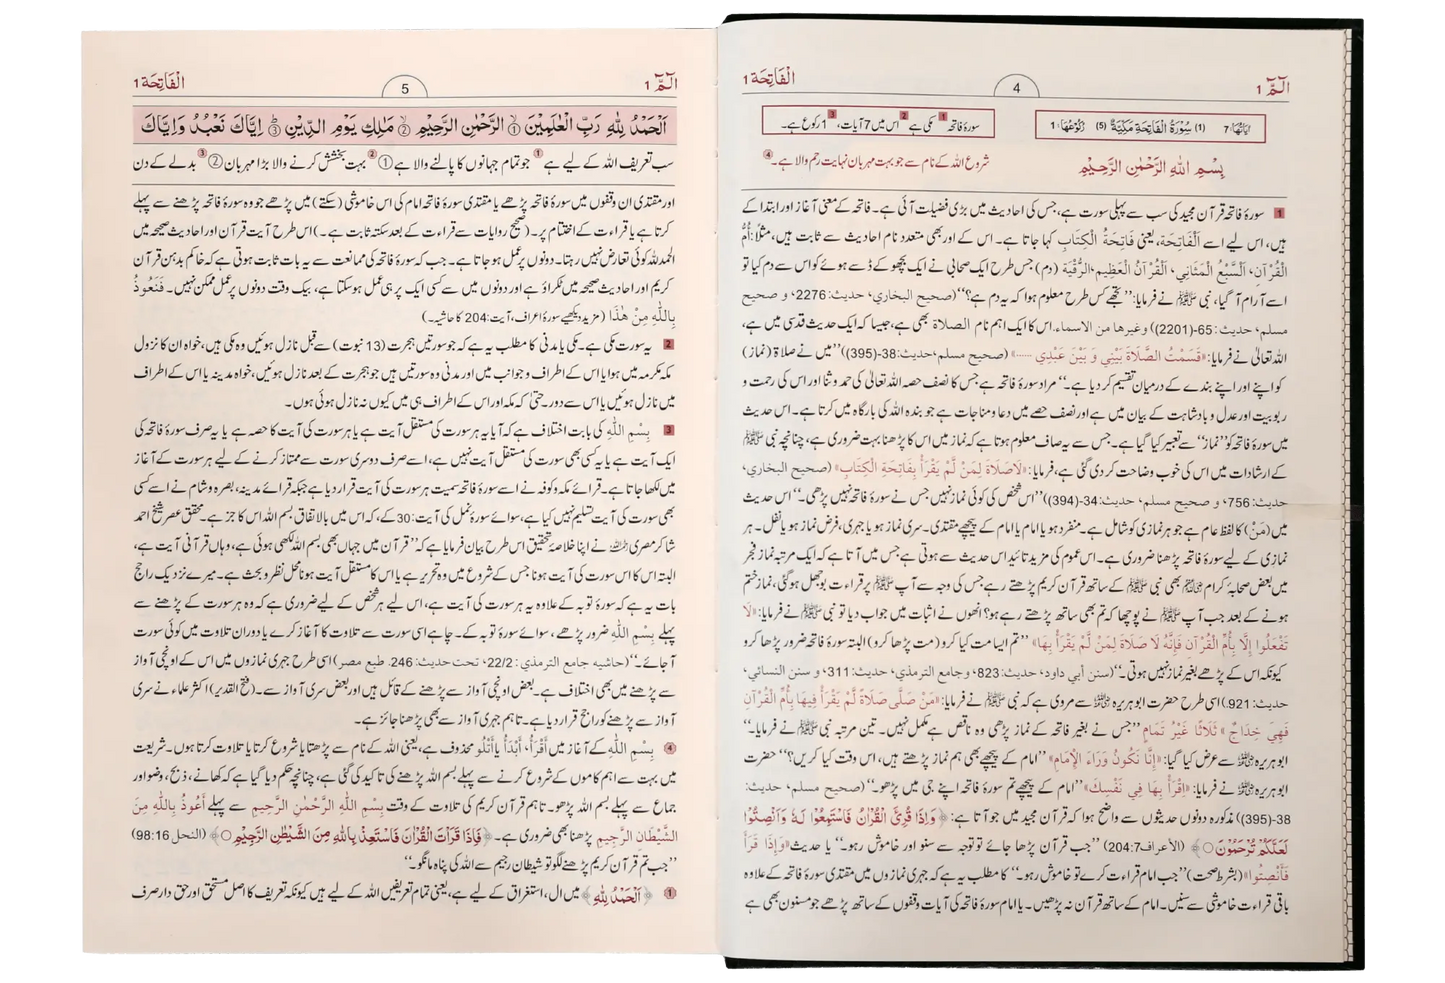 الٓمّٓ 1
4
اَلْفَاتِحَة 1
اٰیَاتُهَا: 7 (1) سُوْرَةُ الْفَاتِحَةِ مَكِّيَّةٌ (5) رُكُوْعُهَا: 1
سورۂ فاتحہ 1 مکی ہے 2 اس میں 7 آیات، 3 1 رکوع ہے۔
بِسْمِ اللهِ الرَّحْمٰنِ الرَّحِيْمِ
شروع اللہ کے نام سے جو بہت مہربان نہایت رحم والا ہے۔ 4
1 سورۂ فاتحہ قرآن مجید کی سب سے پہلی سورت ہے، جس کی احادیث میں بڑی فضیلت آئی ہے۔ فاتحہ کے معنی آغاز اور ابتدا کے
ہیں، اس لیے اسے اَلْفَاتِحَة، یعنی فَاتِحَةُ الْكِتَابِ کہا جاتا ہے۔ اس کے اور بھی متعدد نام احادیث سے ثابت ہیں، مثلاً: أُمُّ
الْقُرْآنِ، اَلسَّبْعُ الْمَثَانِي، اَلْقُرْآنُ الْعَظِيم، الرُّقْيَة (دم) جس طرح ایک صحابی نے ایک بچھو کے ڈسے ہوئے کو اس سے دم کیا تو
اسے آرام آ گیا، نبی ﷺ نے فرمایا: ”تجھے کس طرح معلوم ہوا کہ یہ دم ہے؟“ (صحيح البخاري، حديث: 2276، و صحيح
مسلم، حديث: 65-(2201)) وغيرها من الاسماء. اس کا ایک اہم نام الصلاۃ بھی ہے، جیسا کہ ایک حدیث قدسی میں ہے،
اللہ تعالیٰ نے فرمایا: «قَسَمْتُ الصَّلَاةَ بَيْنِي وَ بَيْنَ عَبْدِي ......» (صحيح مسلم، حديث: 38-(395)) ”میں نے صلاۃ (نماز)
کو اپنے اور اپنے بندے کے درمیان تقسیم کر دیا ہے۔“ مراد سورۂ فاتحہ ہے جس کا نصف حصہ اللہ تعالیٰ کی حمد و ثنا اور اس کی رحمت و
ربوبیت اور عدل و بادشاہت کے بیان میں ہے اور نصف حصے میں دعا و مناجات ہے جو بندہ اللہ کی بارگاہ میں کرتا ہے۔ اس حدیث
میں سورۂ فاتحہ کو ”نماز“ سے تعبیر کیا گیا ہے۔ جس سے یہ صاف معلوم ہوتا ہے کہ نماز میں اس کا پڑھنا بہت ضروری ہے، چنانچہ نبی ﷺ
کے ارشادات میں اس کی خوب وضاحت کر دی گئی ہے، فرمایا: «لَا صَلَاةَ لِمَنْ لَّمْ يَقْرَأْ بِفَاتِحَةِ الْكِتَابِ» (صحيح البخاري،
حديث: 756، و صحيح مسلم، حديث: 34-(394)) ”اس شخص کی کوئی نماز نہیں جس نے سورۂ فاتحہ نہیں پڑھی۔“ اس حدیث
میں (مَنْ) کا لفظ عام ہے جو ہر نمازی کو شامل ہے۔ منفرد ہو یا امام یا امام کے پیچھے مقتدی۔ سری نماز ہو یا جہری، فرض نماز ہو یا نفل۔ ہر
نمازی کے لیے سورۂ فاتحہ پڑھنا ضروری ہے۔ اس عموم کی مزید تائید اس حدیث سے ہوتی ہے جس میں آتا ہے کہ ایک مرتبہ نماز فجر
میں بعض صحابۂ کرام رضی اللہ عنہم بھی نبی ﷺ کے ساتھ قرآن کریم پڑھتے رہے جس کی وجہ سے آپ ﷺ پر قراءت بوجھل ہو گئی، نماز ختم
ہونے کے بعد جب آپ ﷺ نے پوچھا کہ تم بھی ساتھ پڑھتے رہے ہو؟ انھوں نے اثبات میں جواب دیا تو نبی ﷺ نے فرمایا: «لَا
تَفْعَلُوا إِلَّا بِأُمِّ الْقُرْآنِ فَإِنَّهُ لَا صَلَاةَ لِمَنْ لَّمْ يَقْرَأْ بِهَا» ”تم ایسا مت کیا کرو (مت پڑھا کرو) البتہ سورۂ فاتحہ ضرور پڑھا کرو
کیونکہ اس کے پڑھے بغیر نماز نہیں ہوتی۔“ (سنن أبي داود، حديث: 823، و جامع الترمذي، حديث: 311، و سنن النسائي،
حديث: 921) اسی طرح حضرت ابو ہریرہ رضی اللہ عنہ سے مروی ہے کہ نبی ﷺ نے فرمایا: «مَنْ صَلَّى صَلَاةً لَّمْ يَقْرَأْ فِيهَا بِأُمِّ الْقُرْآنِ
فَهِيَ خِدَاجٌ» ثَلَاثًا غَيْرُ تَمَامٍ ”جس نے بغیر فاتحہ کے نماز پڑھی وہ ناقص ہے مکمل نہیں۔ تین مرتبہ نبی ﷺ نے فرمایا۔“
ابو ہریرہ رضی اللہ عنہ سے عرض کیا گیا: «إِنَّا نَكُونُ وَرَاءَ الْإِمَامِ» ”امام کے پیچھے بھی ہم نماز پڑھتے ہیں، اس وقت کیا کریں؟“ حضرت
ابو ہریرہ رضی اللہ عنہ نے فرمایا: «اِقْرَأْ بِهَا فِي نَفْسِكَ» ”امام کے پیچھے تم سورۂ فاتحہ اپنے جی میں پڑھو۔“ (صحيح مسلم، حديث:
38-(395)) مذکورہ دونوں حدیثوں سے واضح ہوا کہ قرآن مجید میں جو آتا ہے: ﴿وَاِذَا قُرِئَ الْقُرْاٰنُ فَاسْتَمِعُوْا لَهٗ وَاَنْصِتُوْا
لَعَلَّكُمْ تُرْحَمُوْنَ ○﴾ (الأعراف 204:7) ”جب قرآن پڑھا جائے تو توجہ سے سنو اور خاموش رہو۔“ یا حدیث «وَإِذَا قَرَأَ
فَأَنْصِتُوا» (بشرط صحت) ”جب امام قراءت کرے تو خاموش رہو۔“ کا مطلب یہ ہے کہ جہری نمازوں میں مقتدی سورۂ فاتحہ کے علاوہ
باقی قراءت خاموشی سے سنیں۔ امام کے ساتھ قرآن نہ پڑھیں۔ یا امام سورۂ فاتحہ کی آیات وقفوں کے ساتھ پڑھے جو مسنون بھی ہے
الٓمّٓ 1
5
اَلْفَاتِحَة 1
اَلْحَمْدُ لِلّٰهِ رَبِّ الْعٰلَمِيْنَ ① الرَّحْمٰنِ الرَّحِيْمِ ② مٰلِكِ يَوْمِ الدِّيْنِ ③ اِيَّاكَ نَعْبُدُ وَاِيَّاكَ
سب تعریف اللہ کے لیے ہے 1 جو تمام جہانوں کا پالنے والا ہے ① 2 بہت بخشش کرنے والا بڑا مہربان ② 3 بدلے کے دن
اور مقتدی ان وقفوں میں سورۂ فاتحہ پڑھے یا مقتدی سورۂ فاتحہ امام کی اس خاموشی (سکتے) میں پڑھے جو وہ سورۂ فاتحہ پڑھنے سے پہلے
کرتا ہے یا قراءت کے اختتام پر۔ (صحیح روایات سے قراءت کے بعد سکتہ ثابت ہے۔) اس طرح آیت قرآن اور احادیث صحیحہ میں
الحمدللہ کوئی تعارض نہیں رہتا۔ دونوں پر عمل ہو جاتا ہے۔ جب کہ سورۂ فاتحہ کی ممانعت سے یہ بات ثابت ہوتی ہے کہ خاکم بدہن قرآن
کریم اور احادیث صحیحہ میں ٹکراؤ ہے اور دونوں میں سے کسی ایک پر ہی عمل ہو سکتا ہے، بیک وقت دونوں پر عمل ممکن نہیں۔ فَنَعُوذُ
بِاللّٰهِ مِنْ هٰذَا (مزید دیکھیے سورۂ اعراف، آیت: 204 کا حاشیہ۔)
2 یہ سورت مکی ہے۔ مکی یا مدنی کا مطلب یہ ہے کہ جو سورتیں ہجرت (13 نبوت) سے قبل نازل ہوئیں وہ مکی ہیں، خواہ ان کا نزول
مکہ مکرمہ میں ہوا یا اس کے اطراف و جوانب میں اور مدنی وہ سورتیں ہیں جو ہجرت کے بعد نازل ہوئیں، خواہ مدینہ یا اس کے اطراف
میں نازل ہوئیں یا اس سے دور۔ حتیٰ کہ مکہ اور اس کے اطراف ہی میں کیوں نہ نازل ہوئی ہوں۔
3 بِسْمِ اللّٰهِ کی بابت اختلاف ہے کہ آیا یہ ہر سورت کی مستقل آیت ہے یا ہر سورت کی آیت کا حصہ ہے یا یہ صرف سورۂ فاتحہ کی
ایک آیت ہے یا یہ کسی بھی سورت کی مستقل آیت نہیں ہے، اسے صرف دوسری سورت سے ممتاز کرنے کے لیے ہر سورت کے آغاز
میں لکھا جاتا ہے۔ قرائے مکہ و کوفہ نے اسے سورۂ فاتحہ سمیت ہر سورت کی آیت قرار دیا ہے جبکہ قرائے مدینہ، بصرہ و شام نے اسے کسی
بھی سورت کی آیت تسلیم نہیں کیا ہے، سوائے سورۂ نمل کی آیت: 30 کے، کہ اس میں بالاتفاق بسم اللہ اس کا جز ہے۔ محقق عصر شیخ احمد
شاکر مصری رحمہ اللہ نے اپنا خلاصۂ تحقیق اس طرح بیان فرمایا ہے کہ ”قرآن میں جہاں بھی بسم اللہ لکھی ہوئی ہے، وہاں قرآنی آیت ہے،
البتہ اس کا اس سورت کی آیت ہونا جس کے شروع میں وہ تحریر ہے یا اس کا مستقل آیت ہونا محل نظر و بحث ہے۔ میرے نزدیک راجح
بات یہ ہے کہ سورۂ توبہ کے علاوہ یہ ہر سورت کی آیت ہے، اس لیے ہر شخص کے لیے ضروری ہے کہ وہ ہر سورت کے پڑھنے سے
پہلے بِسْمِ اللّٰهِ ضرور پڑھے، سوائے سورۂ توبہ کے۔ چاہے اسی سورت سے تلاوت کا آغاز کرے یا دوران تلاوت میں کوئی سورت
آ جائے۔“ (حاشيه جامع الترمذي: 22/2، تحت حديث: 246. طبع مصر) اسی طرح جہری نمازوں میں اس کے اونچی آواز
سے پڑھنے میں بھی اختلاف ہے۔ بعض اونچی آواز سے پڑھنے کے قائل ہیں اور بعض سری آواز سے۔ (فتح القدیر) اکثر علماء نے سری
آواز سے پڑھنے کو راجح قرار دیا ہے۔ تاہم جہری آواز سے بھی پڑھنا جائز ہے۔
4 بِسْمِ اللّٰهِ کے آغاز میں أَقْرَأُ، أَبْدَأُ یا أَتْلُو محذوف ہے، یعنی اللہ کے نام سے پڑھتا یا شروع کرتا یا تلاوت کرتا ہوں۔ شریعت
میں بہت سے اہم کاموں کے شروع کرنے سے پہلے بسم اللہ پڑھنے کی تاکید کی گئی ہے، چنانچہ حکم دیا گیا ہے کہ کھانے، ذبح، وضو اور
جماع سے پہلے بسم اللہ پڑھو۔ تاہم قرآن کریم کی تلاوت کے وقت بِسْمِ اللّٰهِ الرَّحْمٰنِ الرَّحِيمِ سے پہلے أَعُوذُ بِاللّٰهِ مِنَ
الشَّيْطَانِ الرَّجِيمِ پڑھنا بھی ضروری ہے۔ ﴿فَاِذَا قَرَاْتَ الْقُرْاٰنَ فَاسْتَعِذْ بِاللّٰهِ مِنَ الشَّيْطٰنِ الرَّجِيْمِ ○﴾ (النحل 98:16)
”جب تم قرآن کریم پڑھنے لگو تو شیطان رجیم سے اللہ کی پناہ مانگو۔“
1 ﴿اَلْحَمْدُ لِلّٰهِ﴾ میں ال، استغراق کے لیے ہے، یعنی تمام تعریفیں اللہ کے لیے ہیں کیونکہ تعریف کا اصل مستحق اور حق دار صرف